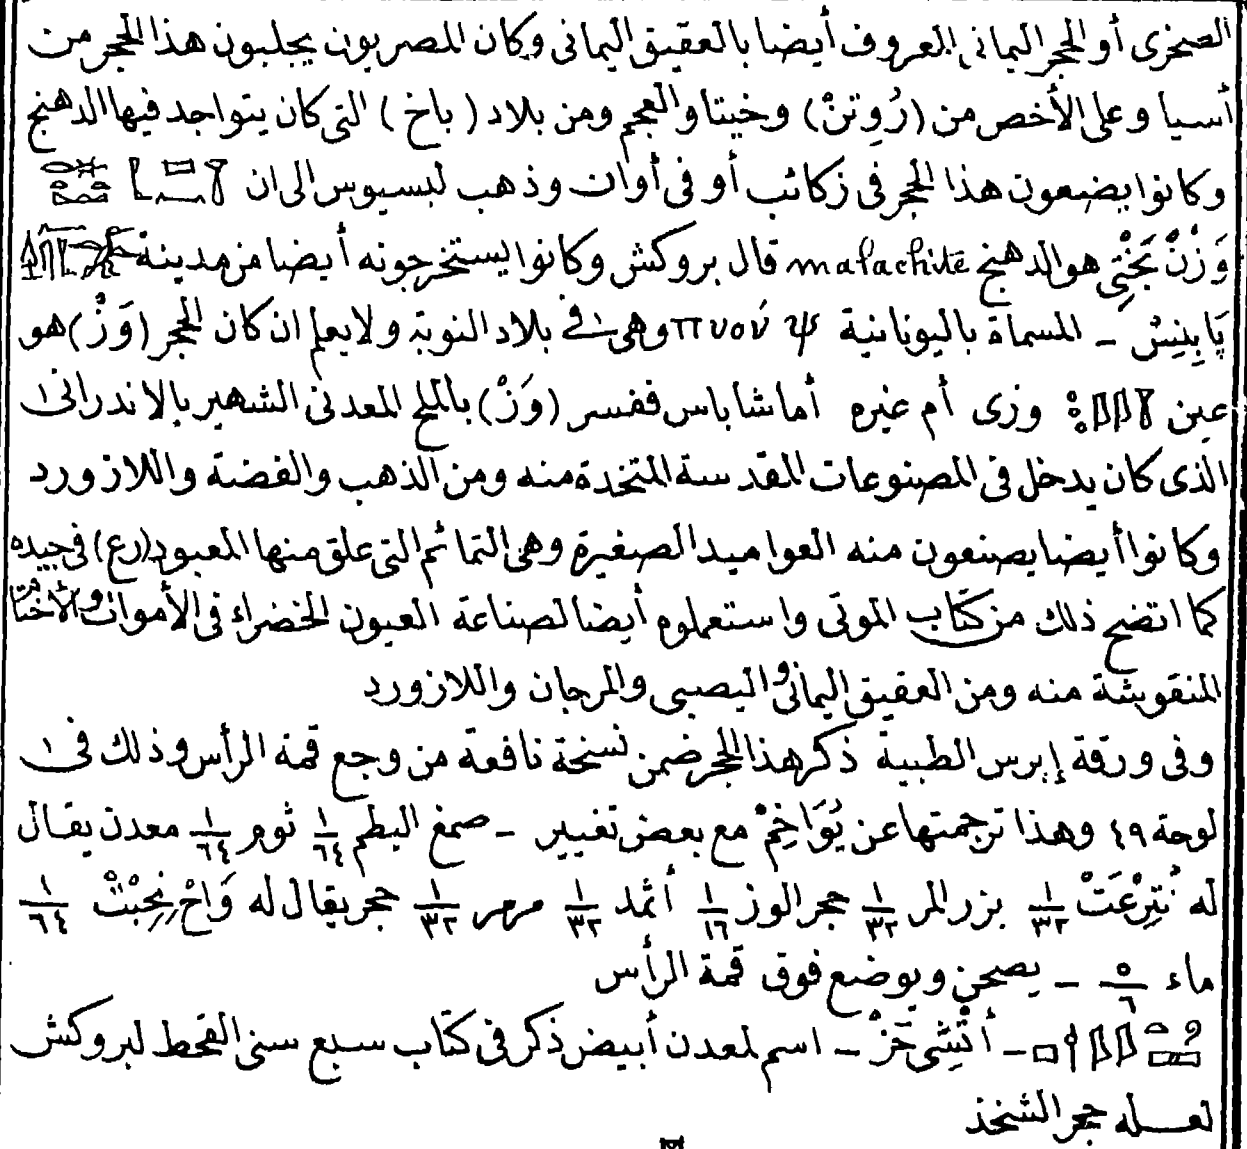 الصخرى أو الحجر اليمانى المعروف أيضا بالعقيق اليمانى وكان المصريون يجلبون هذا الحجر من
أسيا وعلى الأخص من (رُوِتنْ) وخيتا والعجم ومن بلاد (باخ) التى كان يتواجد فيها الدهنج
وكانوا يضعون هذا الحجر فى زكائب أو فى أوان وذهب لبسيوس الى ان
وَزْنْ بَخْتِى هو الدهنج malachite قال بروكش وكانوا يستخرجونه أيضا من مدينة
پَابِنِسْ ـ المسماة باليونانية ψ πνού وهى فى بلاد النوبة ولا يعلم ان كان الحجر (وَزْ) هو
عين وزى أم غيره أما شاباس ففسر (وَزْ) بالملح المعدنى الشهير بالاندرانى
الذى كان يدخل فى المصنوعات المقدسة المتخذة منه ومن الذهب والفضة واللازورد
وكانوا أيضا يصنعون منه العواميد الصغيرة وهى التمائم التى علق منها المعبود (رع) فى جيده
كما اتضح ذلك من كتاب الموتى واستعملوه أيضا لصناعة العيون الخضراء فى الأموات والأختام
المنقوشة منه ومن العقيق اليمانى واليصبى والمرجان واللازورد
وفى ورقة إبرس الطبية ذكر هذا الحجر ضمن نسخة نافعة من وجع قمة الرأس وذلك فى
لوحة ٤٩ وهذا ترجمتها عن يُوَاخِمْ مع بعض تغيير ـ صمغ البطم ١/٦٤ ثوم ١/٦٤ معدن يقال
له نُتِرْعَتْ ١/٣٢ بزر المر ١/٣٢ حجر الوز ١/١٦ أثمد ١/٣٢ مرمر ١/٣٢ حجر يقال له وَاحْ نِحِبْتْ ١/٦٤
ماء ٥/٦ ـ يصحن ويوضع فوق قمة الرأس
ـ أَنْشِى خَزْ ـ اسم لمعدن أبيض ذكر فى كتاب سبع سنى القحط لبروكش
لعله حجر الشنخذ